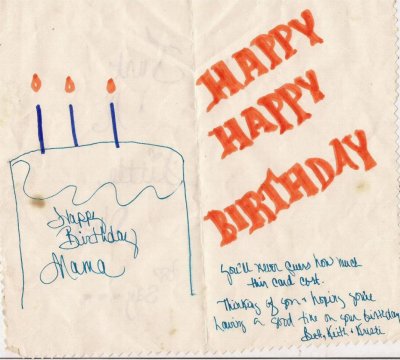 Happy
Birthday
Mama
HAPPY
HAPPY
BIRTHDAY
You'll never guess how much
this card cost.
Thinking of you + hoping you're
having a good time on your birthday
Beth, Keith + Kristi